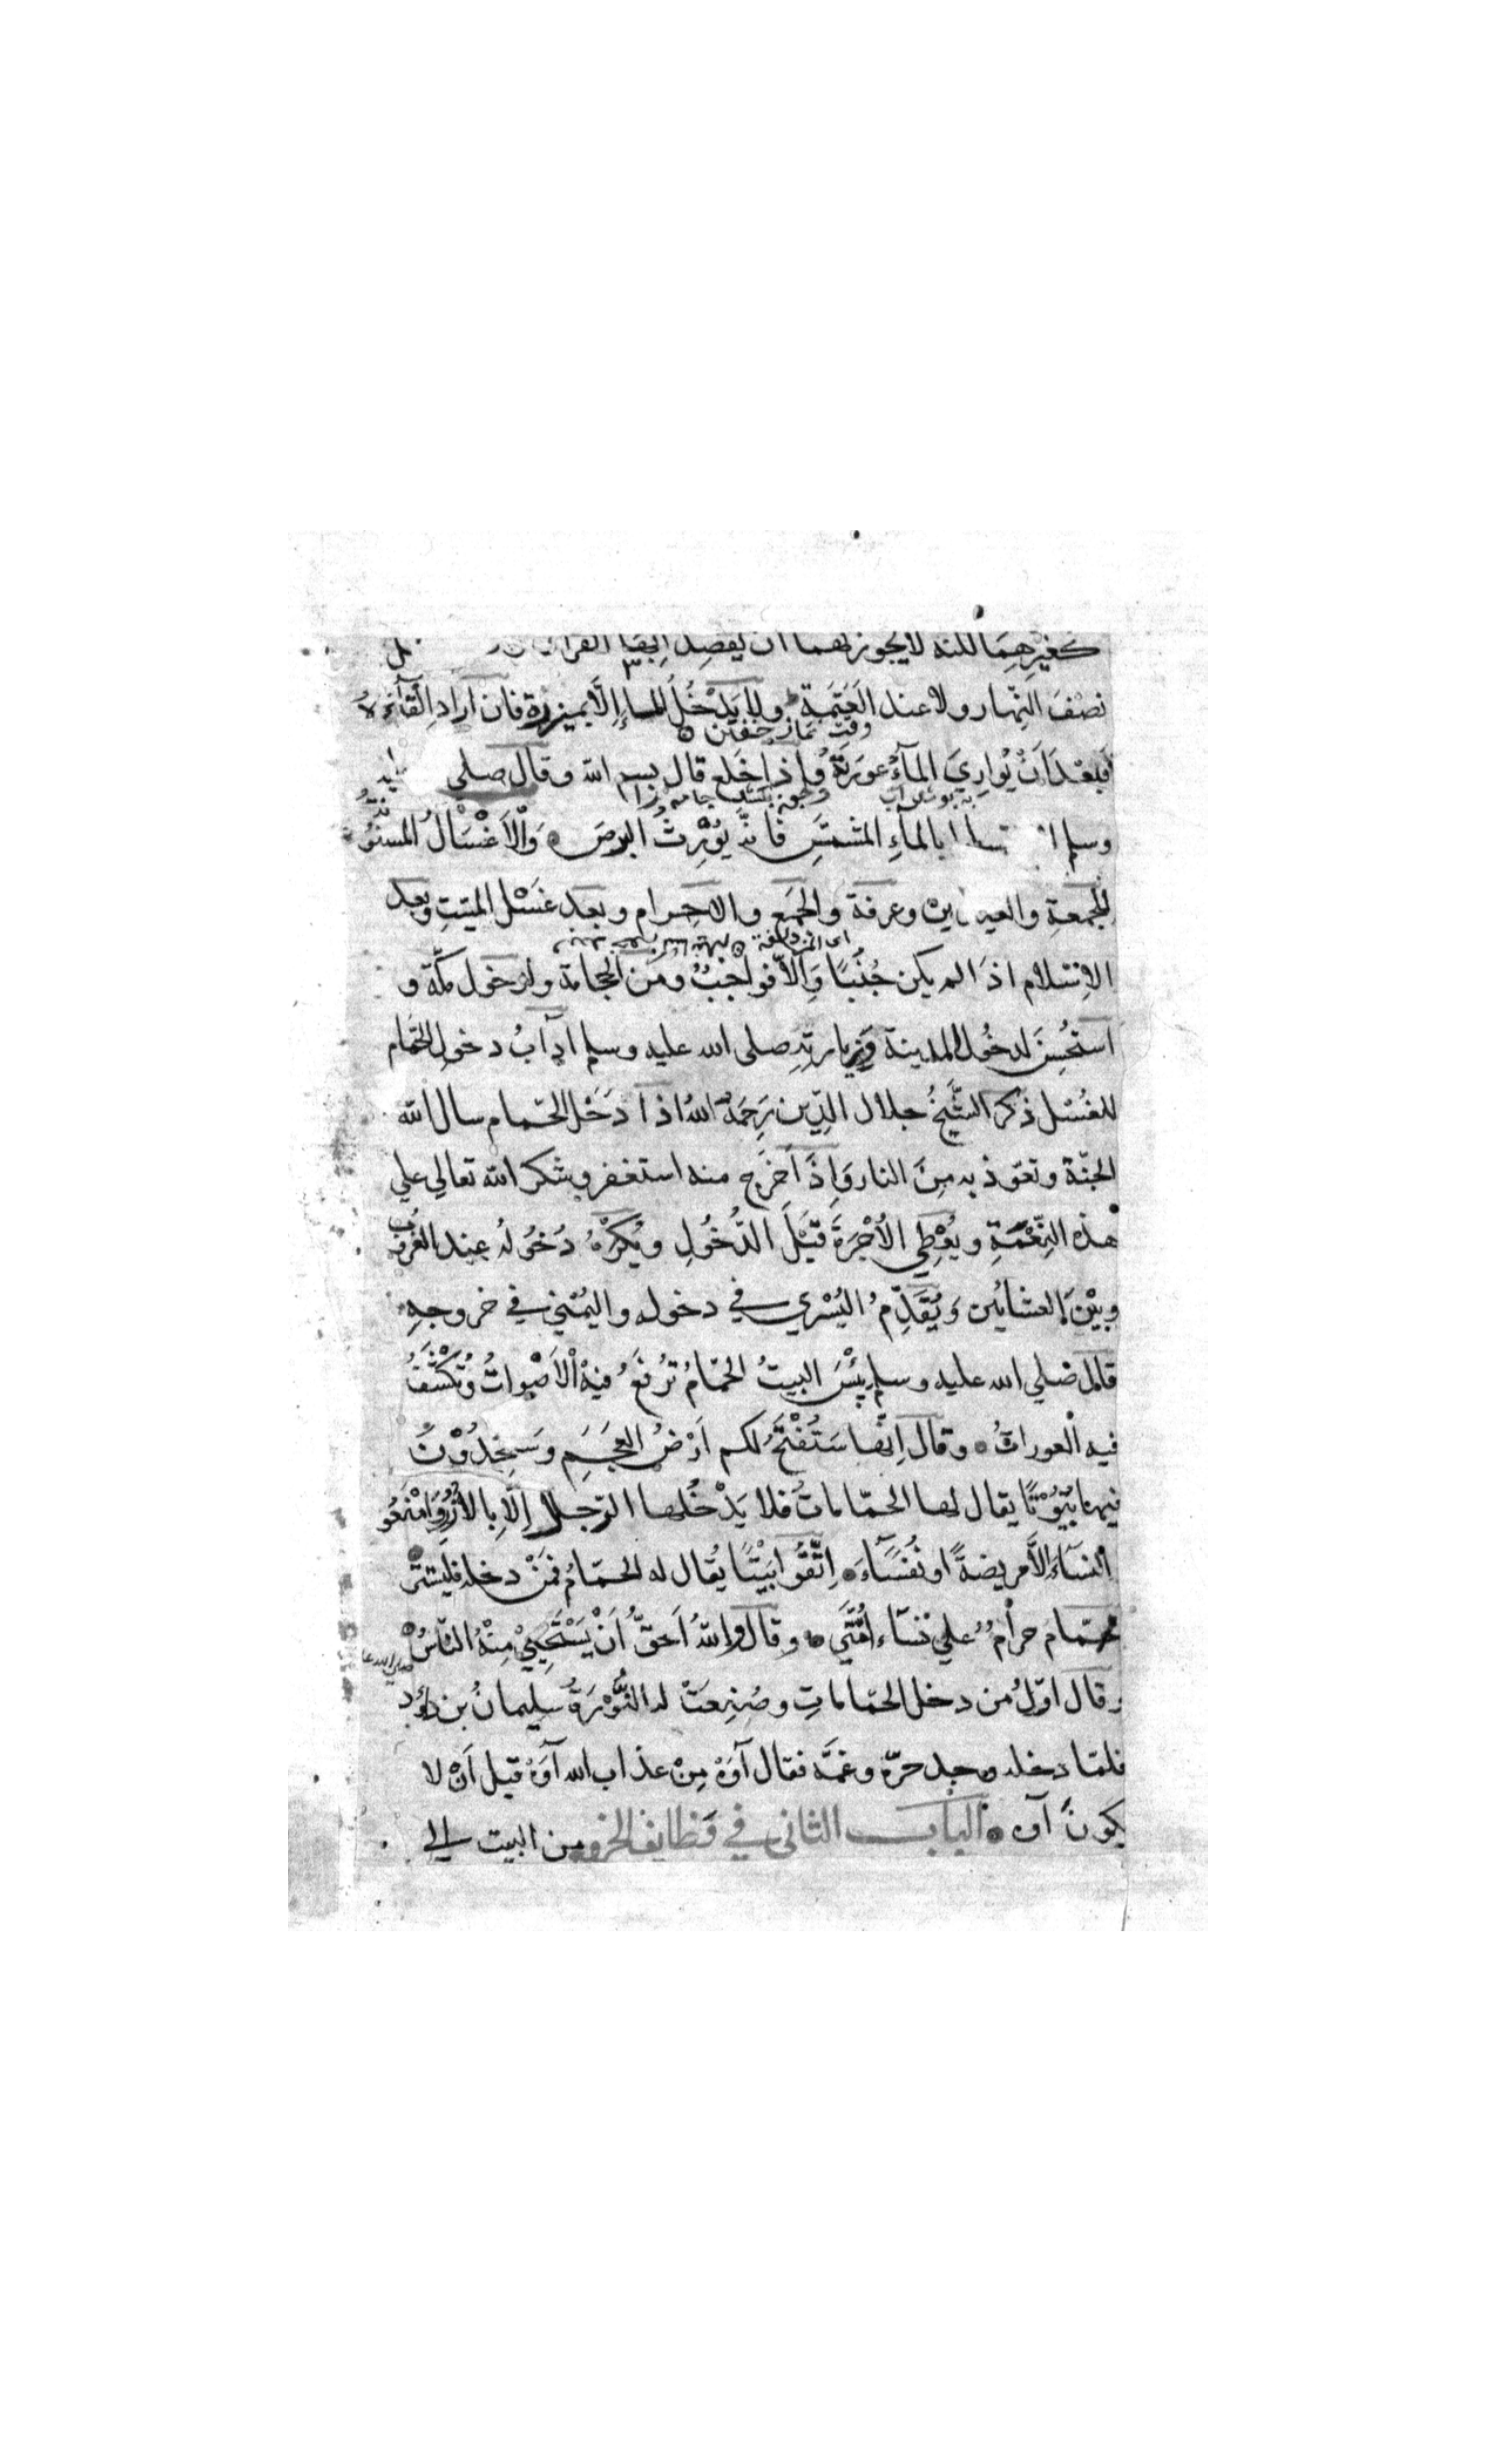 كغيرهما لكنه لا يجوز لهما ان
نِصْفَ النهار ولا عند العَتَمَة ولا يَدْخُلُ الماءَ إلّا بميزرة فان اراد القآءَهُ
وقت نماز خفتن
فبعْدَ اَنْ يُوارِيَ المآءُ عورَتَهُ واذا خلع قال بسم الله وقال صلى
وسلم بالمآءِ المشمَّسِ فانّه يُوْرِثُ البرصَ وَالْاَغْسَالُ المسنونة
للجمعةِ والعيدين وعرفة والجَمع والاحرام وبعد غَسْلِ الميّتِ وبعد
اى المزدلفة
الاِسْلام اذا لم يكن جُنُبًا وَاِلّا فواجبٌ ومن الحجامة ولدخول مكّة و
استُحْسِنَ لدخُول المدينة وزيارتِهِ صلى الله عليه وسلم آدابُ دخولِ الحمّام
للغُسْل ذكر الشَّيخُ جلال الدّين رَحِمَهُ اللهُ اذا دَخَل الحمّام سال الله
الجنّة وتعوّذ به مِنَ النار وَاِذَا خرج منه استغفر وشكر الله تعالى علي
هٰذه النِّعْمَةِ ويُعْطِي الاُجْرَةَ قَبْلَ الدُّخُولِ ويُكْرَهُ دُخُولُهُ عند الغروب
وبيْنَ العشائين وَيُقَدِّمُ اليُسْري في دخوله واليُمْني في خروجهِ
قال صلي الله عليه وسلم بِئْسَ البيتُ الحمّامُ تُرْفَعُ فيهْ الْاَصْواتُ وتُكْشَفُ
فيه الْعوراتُ وقال اِنّها سَتُفْتَحُ لكم اَرْضُ العَجَمِ وَسَتجِدُوْنَ
فيها بُيُوْتًا يقال لها الحمّاماتُ فلا يَدْخُلها الرّجال اِلّا بالاُزُرِ وَامْنَعُو
النساءَ اِلاَّ مريضةً او نُفَسَآءَ اِتَّقُوا بَيْتًا يُقال له الحمّامُ فمَنْ دخله فليستتر
الحمّام حرامٌ علي نسآء اُمَّتي وقال واللهُ اَحَقُّ اَنْ يَسْتَحْيِيَ مِنْهُ النّاسُ
وقال اوّلُ من دخل الحمّاماتِ وصُنِعَتْ له النُّوْرَةُ سليمانُ بن داوُد
فلمّا دخله وجد حرّه وغمّه فقال آوَهْ مِنْ عذاب الله آوَهْ قبل اَنْ لا
يكونَ آوه الباب الثاني في وظايف الخروج من البيت الي